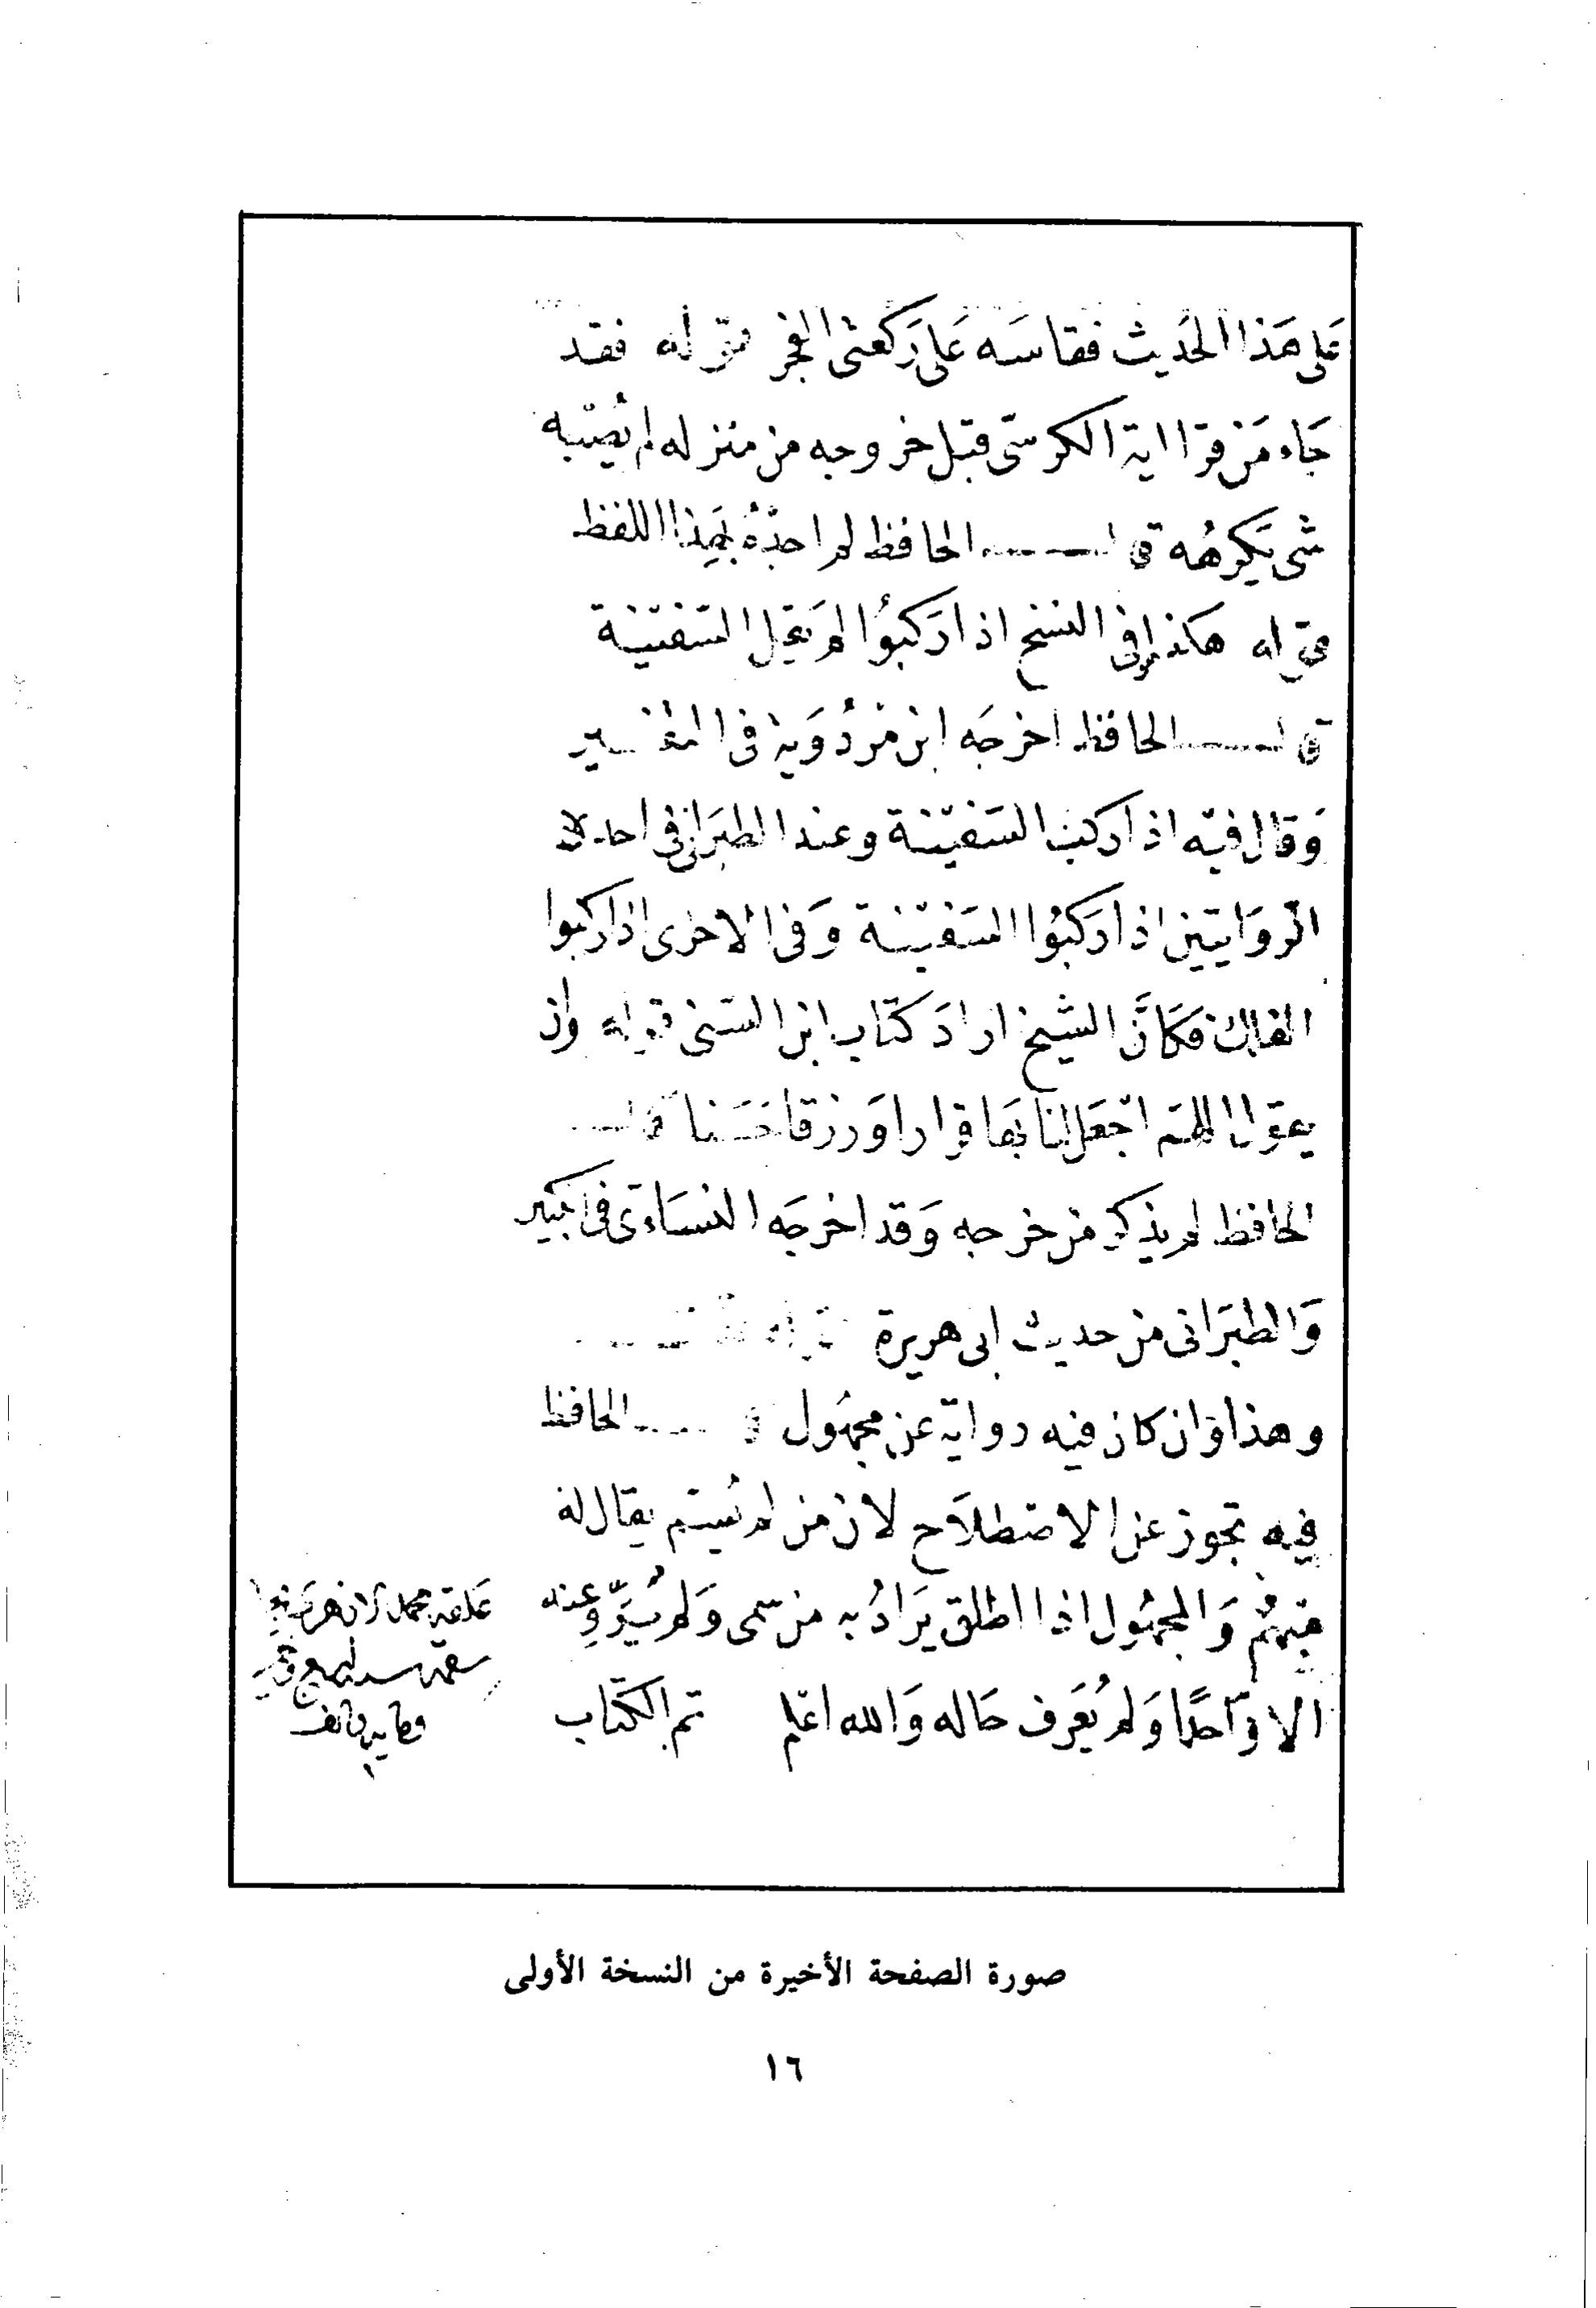 على هَذا الحَديث فقاسَه عَلى رَكعتى الفجر قوله فقد
جَاء مَن قرا اية الكرسى قبل خروجه من منزله لم يُصبه
شى يكرهُه قال الحافظ لم اجدهُ بهَذا اللفظ
قوله هكذا فى النسخ اذا رَكبُوا لم يَقل السَفينة
قال الحافظ اخرجَه ابن مَرْدُوَية فى التفسير
وَقال فيه اذا ركب السَفينة وعند الطبَرانى فى احدى
الروَايتين اذا رَكبُوا السَفينة وَفى الاخرى اذا ركبوا
الفلك فكَانَّ الشيخ ارادَ كتاب ابن السنى قوله وان
يقول اللهم اجعَل لنا بهَا قرارا وَرزقا حَسَنا قال
الحافظ لم يذكر من خرجه وَقد اخرجَه النسَاءى فى الكبير
وَالطبَرانى من حديث ابى هريرة
وهذا وان كان فيه رواية عن مجهُول الحافظ
فيه تجوز عن الاصطلاَح لان من لم يُسَم يقال له
مُبهَم وَالمجهُول اذا اطلق يَرادُ به من سمى وَلم يَروِ عنه
الا وَاحدًا وَلم يُعرَف حَاله وَالله اعلم تم الكتاب
صورة الصفحة الأخيرة من النسخة الأولى
١٦